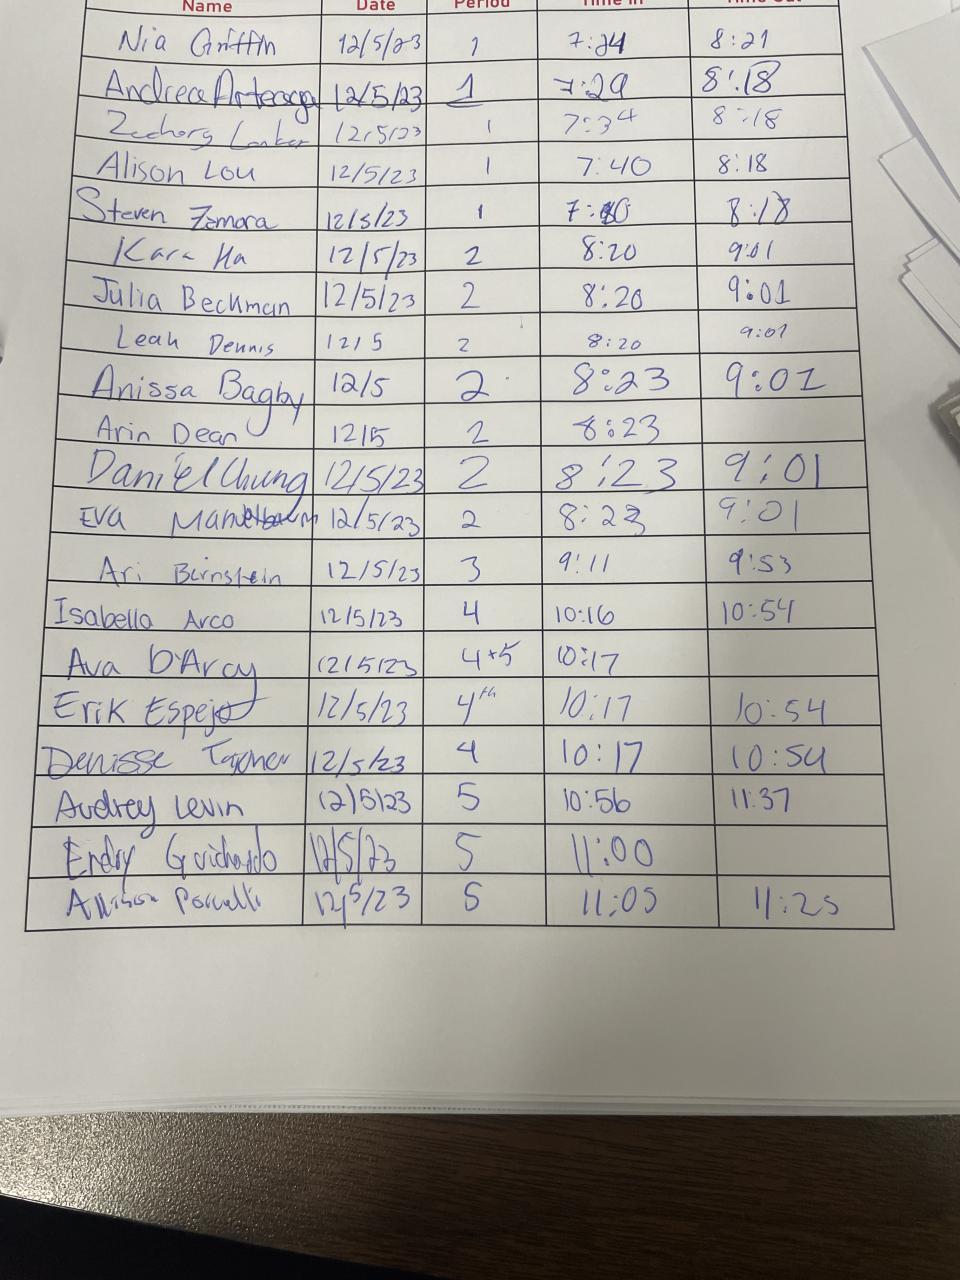 Name Date Period Time In Time Out
Nia Griffin 12/5/23 1 7:24 8:21
Andrea Arteaga 12/5/23 1 7:29 8:18
Zachary 12/5/23 1 7:34 8:18
Alison Lou 12/5/23 1 7:40 8:18
Steven Zamora 12/5/23 1 8:18
Kara Ha 12/5/23 2 8:20 9:01
Julia Beckman 12/5/23 2 8:20 9:01
Leah Dennis 12/5 2 8:20 9:01
Anissa Bagby 12/5 2 8:23 9:01
Arin Dean 12/5 2 8:23
Daniel Chung 12/5/23 2 8:23 9:01
Eva Mandelbaum 12/5/23 2 8:23 9:01
Ari Birnstein 12/5/23 3 9:11 9:53
Isabella Arco 12/5/23 4 10:16 10:54
Ava D'Arcy 12/5/23 4+5 10:17
Erik Espejo 12/5/23 4th 10:17 10:54
Denisse 12/5/23 4 10:17 10:54
Audrey Levin 12/5/23 5 10:56 11:37
Endry Guichardo 12/5/23 5 11:00
12/5/23 5 11:05 11:25